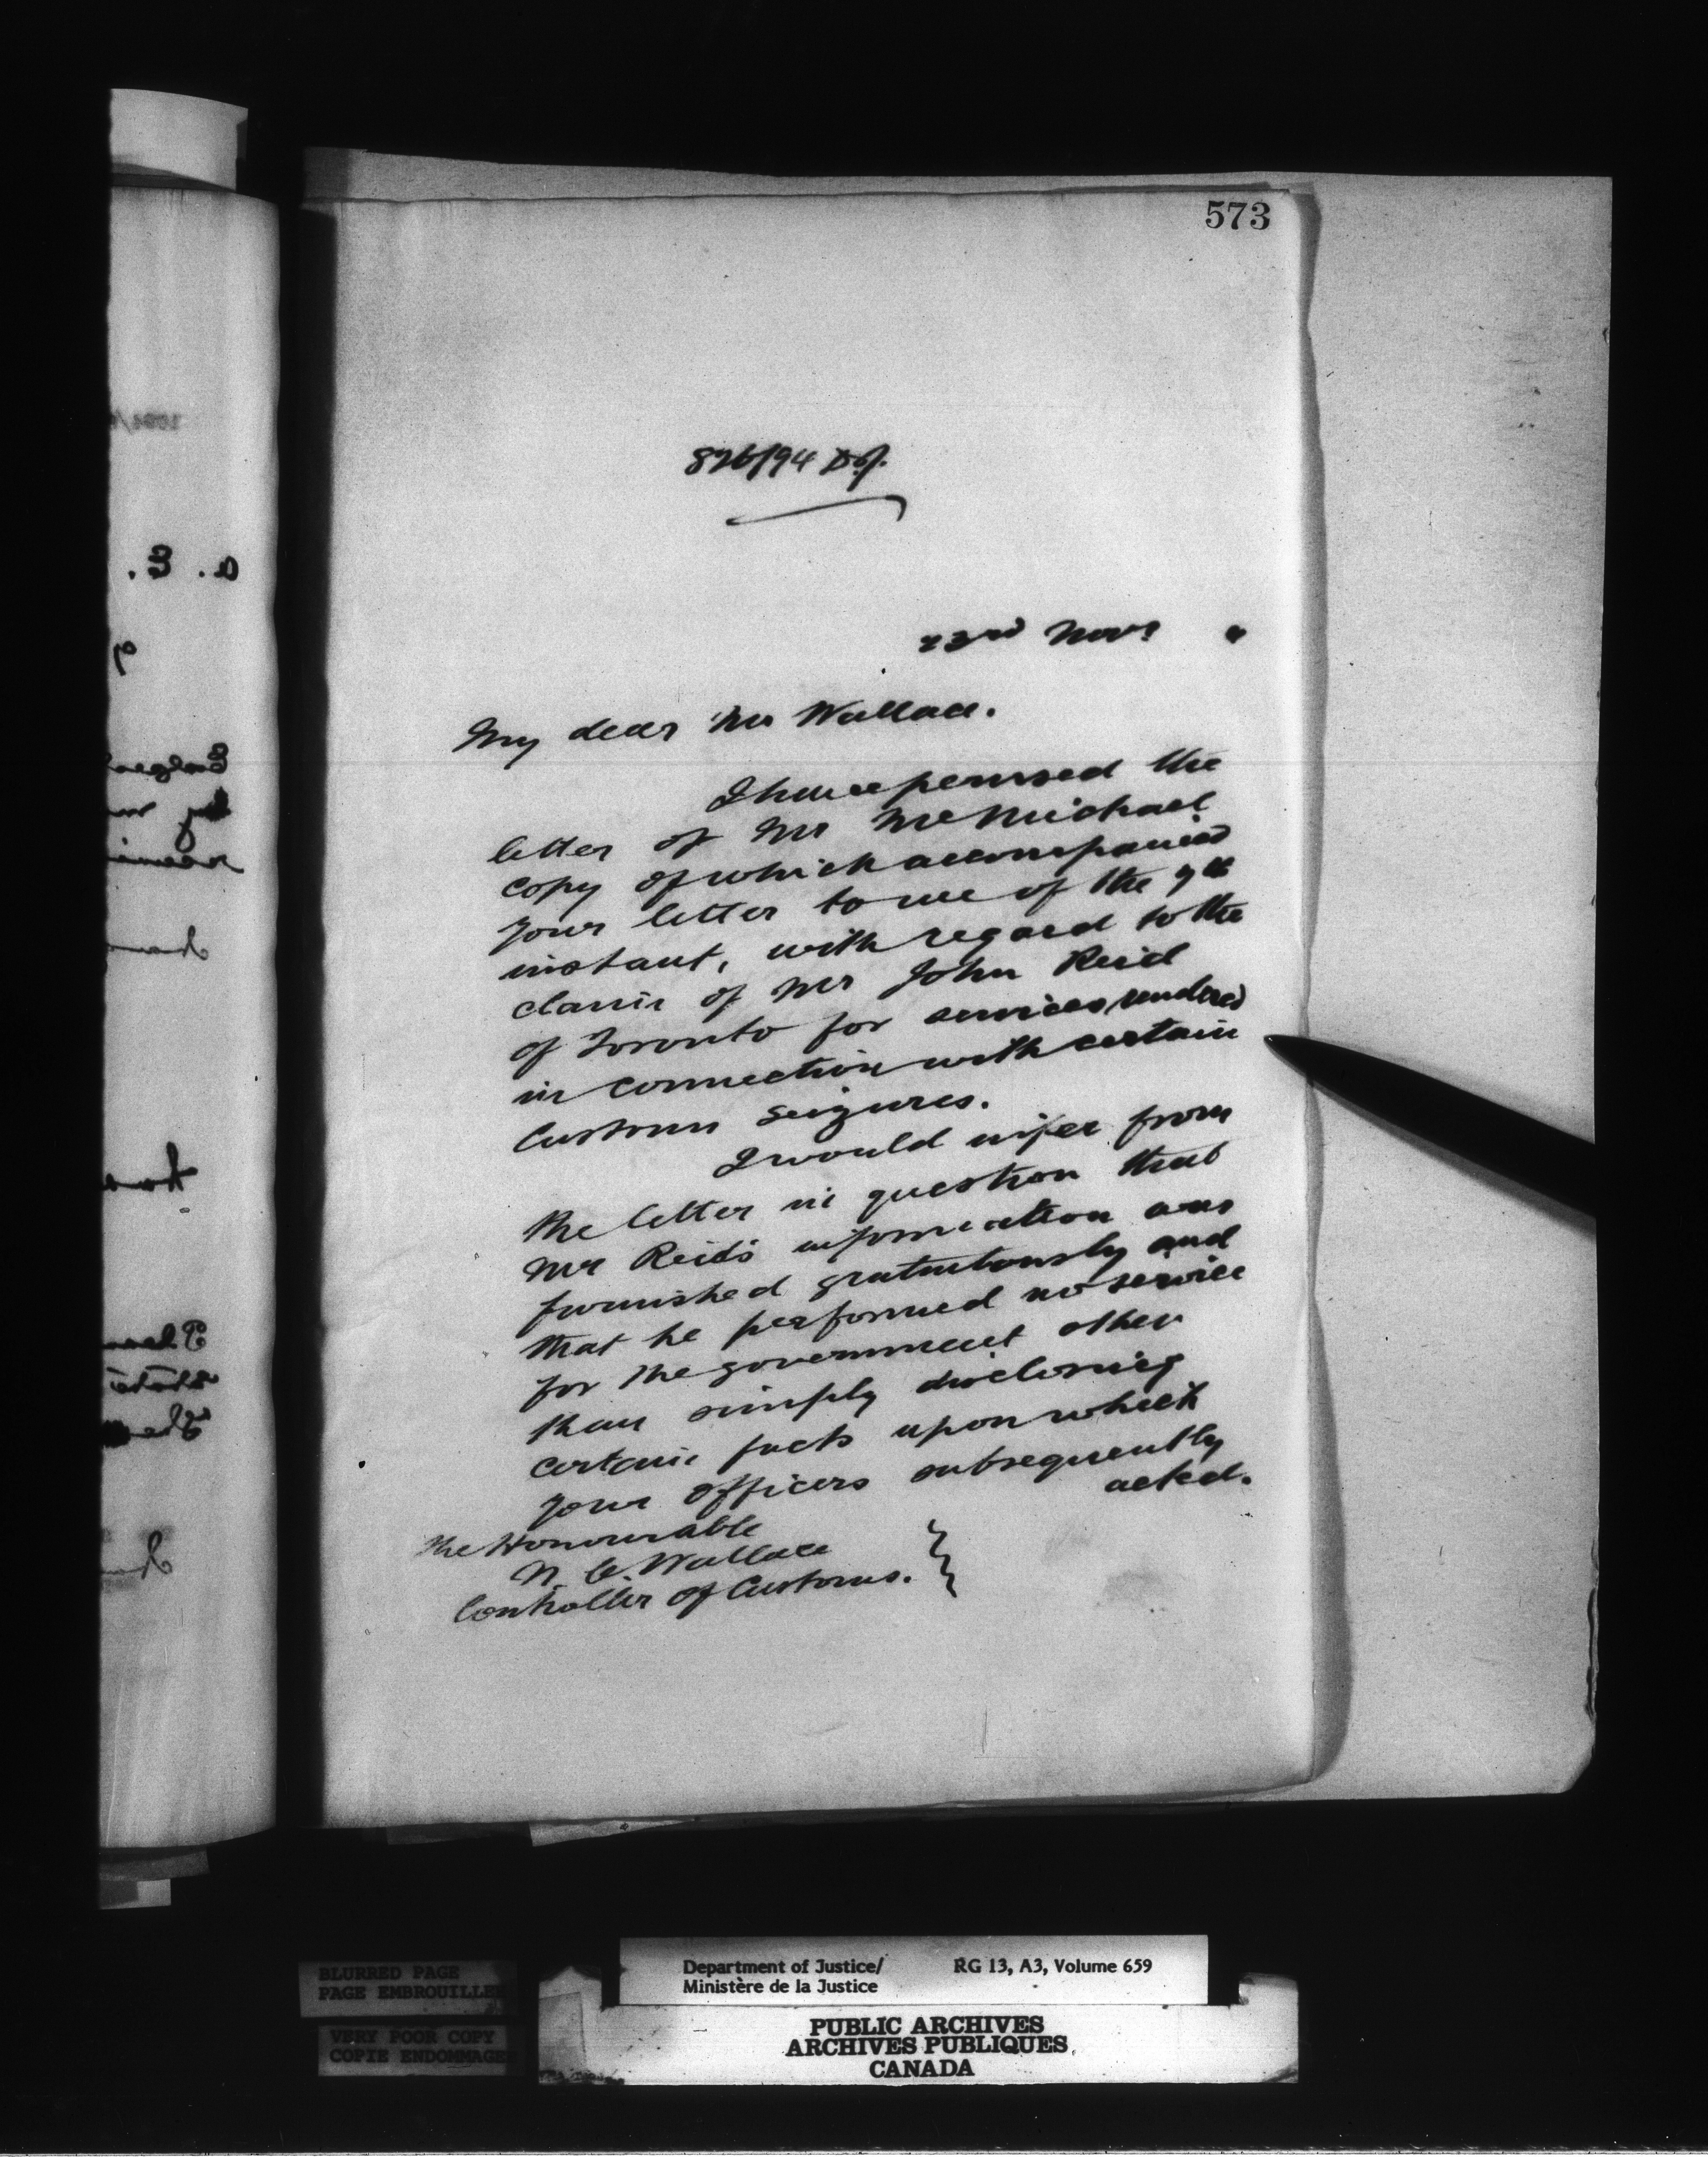 573
826/94 D.J.
23rd Novr 4
My dear Mr Wallace.
I have perused the
letter of Mr McMichael
copy of which accompanied
your letter to me of the 9th
instant, with regard to the
claim of Mr John Reid
of Toronto for services rendered
in connection with certain
Customs seizures.
I would infer from
the letter in question that
Mr Reid's information was
furnished gratuitously and
that he performed no service
for the government other
than simply disclosing
certain facts upon which
your officers subsequently
acted.
The Honourable
N. C. Wallace
Controller of Customs.
BLURRED PAGE
PAGE EMBROUILLEE
VERY POOR COPY
COPIE ENDOMMAGE
Department of Justice/ RG 13, A3, Volume 659
Ministère de la Justice
PUBLIC ARCHIVES
ARCHIVES PUBLIQUES
CANADA